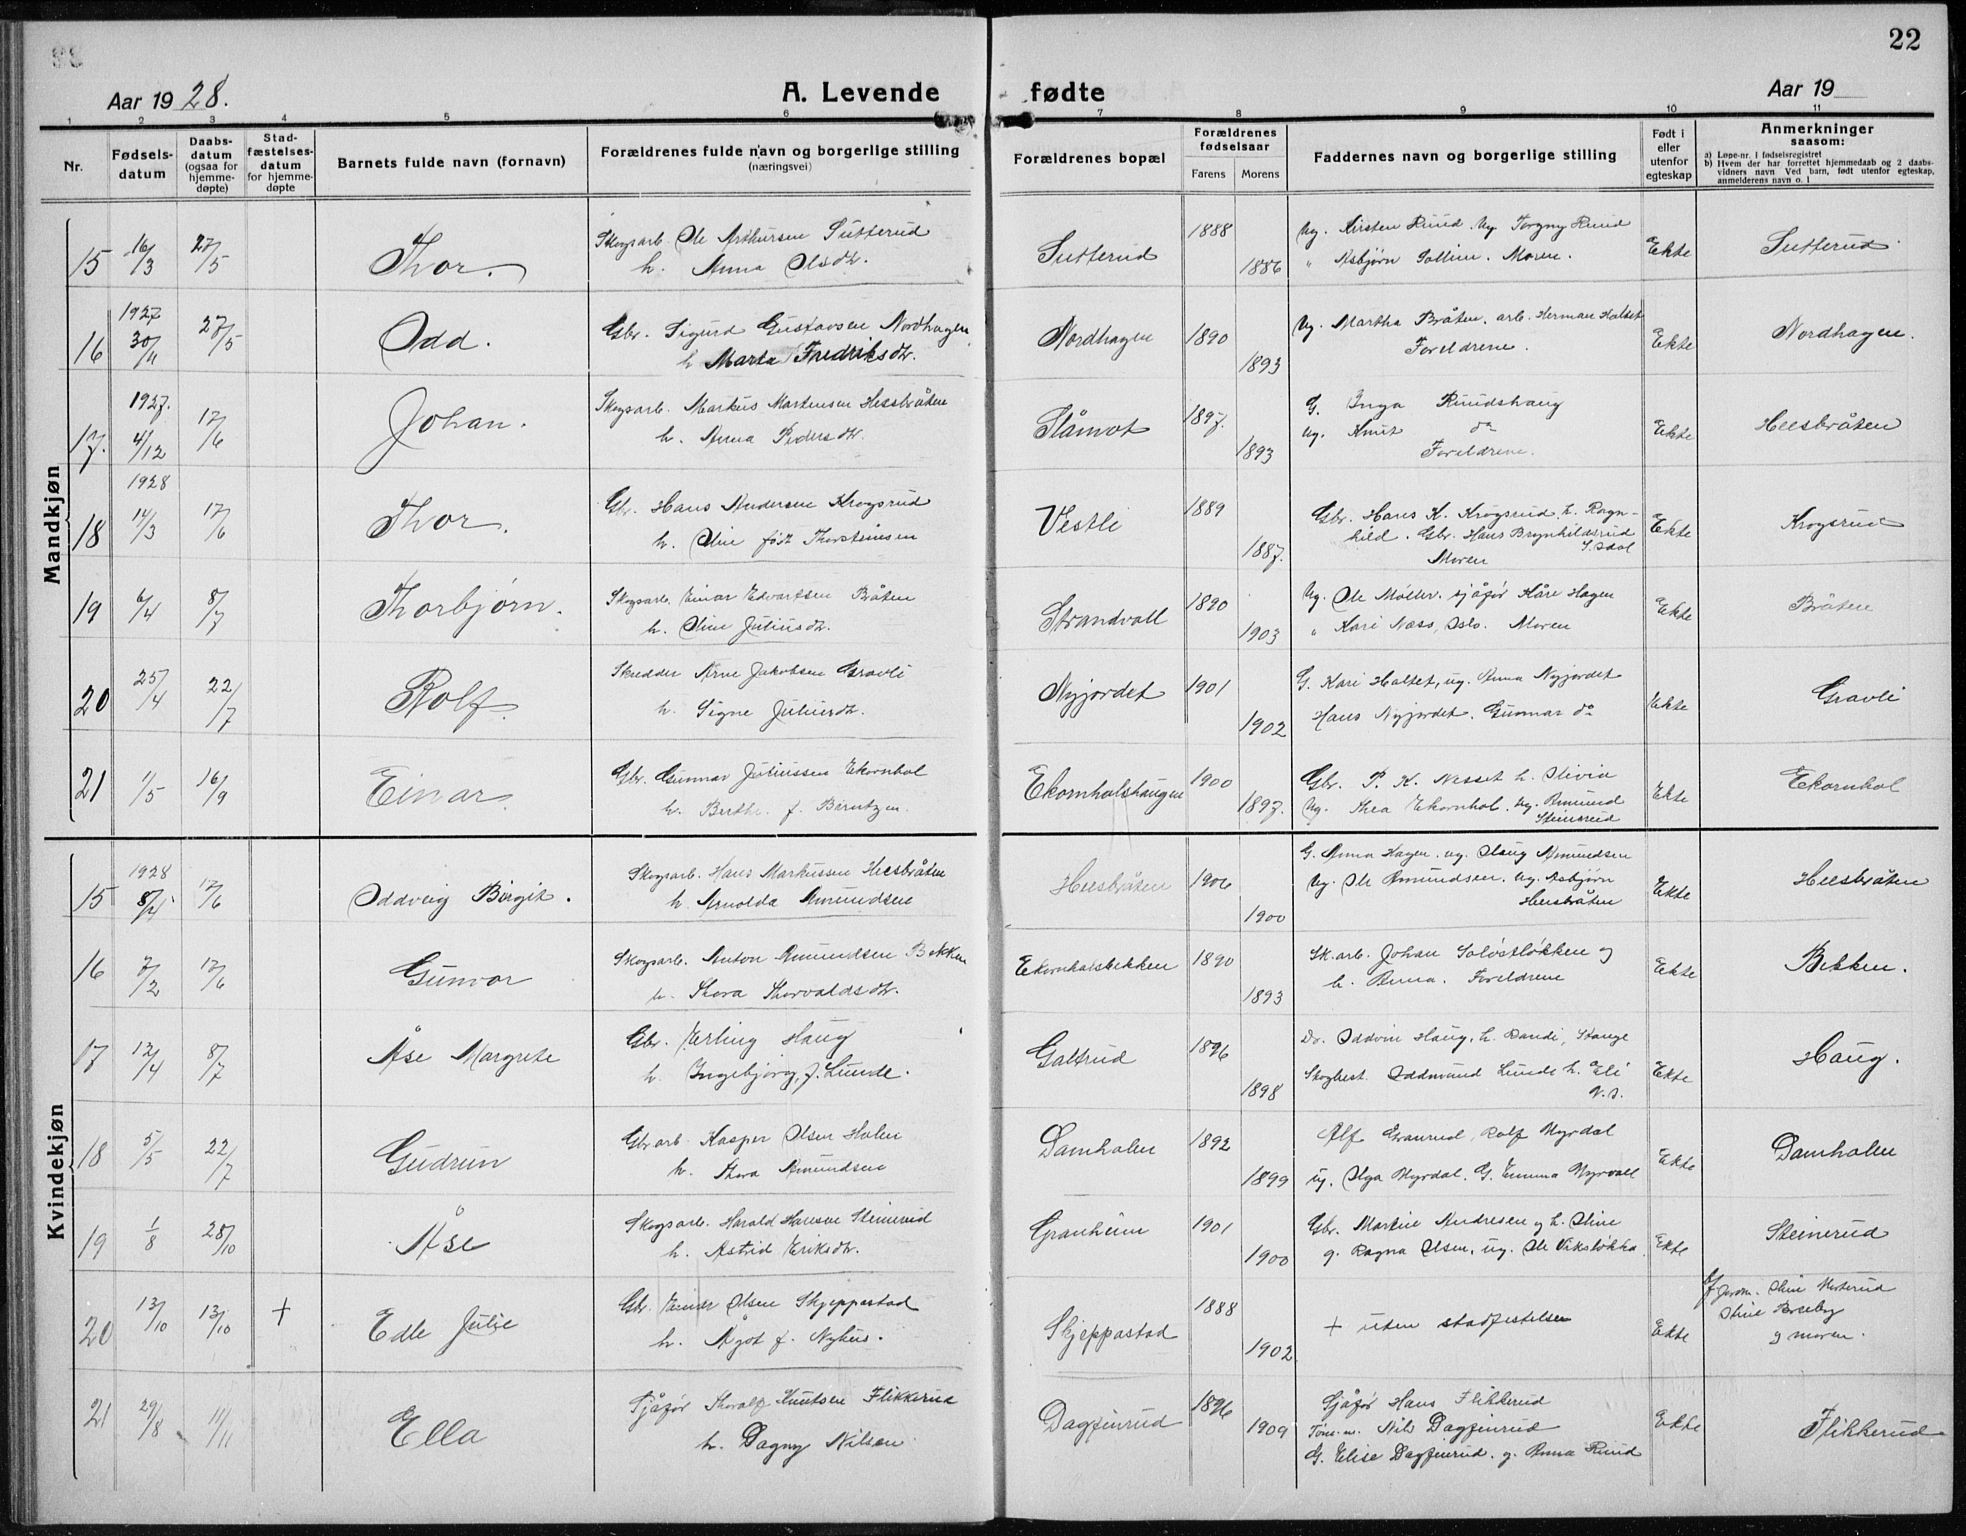 22
Aar 1928.
A. Levende fødte
Aar 19
1 2 3 4 5 6 7 8 9 10 11
Nr.
Fødsels-
datum
Daabs-
datum
(ogsaa for
hjemme-
døpte)
Stad-
fæstelses-
datum
for hjemme-
døpte
Barnets fulde navn (fornavn)
Forældrenes fulde navn og borgerlige stilling
(næringsvei)
Forældrenes bopæl
Forældrenes
fødselsaar
Farens Morens
Faddernes navn og borgerlige stilling
Født i
eller
utenfor
egteskap
Anmerkninger
saasom:
a) Løpe-nr. i fødselsregistret
b) Hvem der har forrettet hjemmedaab og 2 daabs-
vidners navn Ved barn, født utenfor egteskap,
anmelderens navn o. l
Mandkjøn
15 16/3 27/5 Thor.
Skogsarb. Ole Arthursen Sutterud
h. Anna Olsdtr.
Sutterud 1888 1886
Ug. Kirsten Ruud. Ug Torgny Ruud
" Asbjørn Sollien. Moren.
Ekte Sutterud
16 1927 30/11 27/5 Odd.
Gbr. Sigurd Gustavsen Nordhagen
h Marta Fredriksdtr.
Nordhagen 1890 1893
Ug. Martha Bråten. arb. Herman Haltet
Foreldrene.
Ekte Nordhagen.
17. 1927. 4/12 17/6 Johan.
Skogsarb. Markus Martinsen Heesbråten
h. Anna Pedersdtr.
Slåmot 1897. 1893
G. Inga Ruudshaug
ug. Knut do
Foreldrene.
Ekte Heesbråten
18 1928 14/3 17/6 Thor.
Gbr. Hans Andersen Krogsrud
h. Oline født Thorstensen
Vestli 1889 1887.
Gbr. Hans K. Krogsrud h. Ragn-
hild. Gbr. Hans Brynhildsrud
Moren S. Odal
Ekte Krogsrud
19 6/4 8/7 Thorbjørn.
Skogsarb. Einar Edvartsen Bråten
h. Oline Juliusdtr.
Strandvoll 1890 1903
Ug. Ole Møller. sjåfør Kåre Hagen
" Kari Næss, Oslo. Moren
Ekte Bråten
20 25/4 22/7 Rolf.
Skredder Arne Jakobsen Gravli
h. Signe Juliusdtr.
Nyjordet 1901 1902
G. Kari Haltet, ug. Anna Nyjordet
Hans Nyjordet. Gunnar do
Ekte Gravli
21 1/5 16/9 Einar.
Gbr. Gunnar Juliussen Ekornhol
h. Berthe. f. Berntzen.
Ekornholshaugen 1900 1897.
Gbr. P. K. Nesset h. Olivia
Ug. Thea Ekornhol. Ug. Amund
Steinsrud
Ekte Ekornhol
Kvindekjøn
15 1928 8/4 17/6 Oddveig Borgit.
Skogsarb. Hans Markussen Heesbråten
h. Arnolda Amundsen
Heesbråten 1906 1900
G. Anna Hagen. ug. Olaug Amundsen
Ug. Ole Amundsen. Ug. Asbjørn
Heesbråten
Ekte Heesbråten
16 7/2 17/6 Gunvor
Skogsarb. Anton Amundsen Bekken
h. Thora Thorvaldsdtr.
Ekornholsbekken 1890 1893
Sk.arb. Johan Soløstløkken og
h. Anna. Foreldrene
Ekte Bekken.
17 12/4 8/7 Åse Margrete
Gbr. Erling Haug
h. Ingebjørg, f. Lunde.
Galtrud 1896 1898
Do. Oddvin Haug, h. Randi, Stange
Skogbest. Oddmund Lunde h. Eli
V.S.
Ekte Haug.
18 5/5 22/7 Gudrun
Gbrarb. Kasper Olsen Holen
h. Thora Amundsen
Damholen 1892 1899
Alf Granrud, Rolf Myrdal
ug. Olga Myrdal. G. Emma Myrvoll
Ekte Damholen
19 1/8 28/10 Åse
Skogsarb. Harald Hansen Steinerud
h. Astrid Eriksdtr.
Granheim 1901 1900
Gbr. Martin Andresen og h. Oline
g. Ragna Olsen, ug. Ole Viksløkka
Ekte Steinerud
20 13/10 13/10 + Edle Julie
Gbr. Einar Olsen Skjeppastad
h. Ågot f. Nyhus.
Skjeppastad 1888 1902
+ uten stadfestelse
Ekte
af Jordm. Oline Merterud
Oline Borseby
og moren.
21 29/8 11/11 Ella
Sjåfør Thoralf Knutsen Flikkerud
h. Dagny Nilsen
Dagfinrud 1896 1909
Sjåfør Hans Flikkerud
Tøm.m. Nils Dagfinrud
G. Elise Dagfinrud. g. Anna Ruud
Ekte Flikkerud